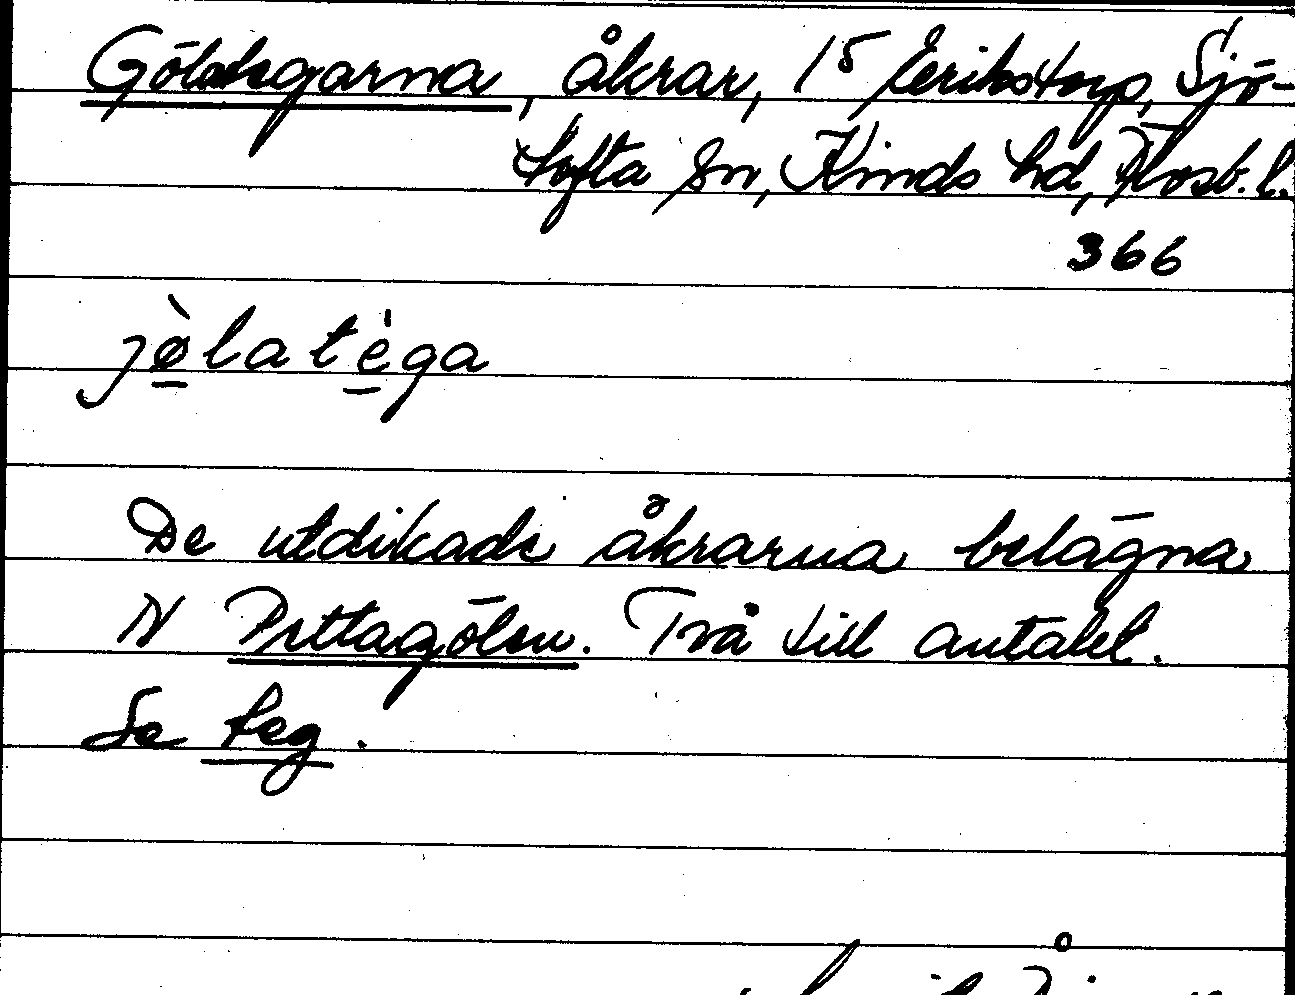 Göltegarna, åkrar, 15 Erikstorp, Sjö-
tofta sn, Kinds hd, Älvsb. l.
366
jø̀latėga
De utdikade åkrarna belägna
N Pettagölen. Två till antalet.
Se teg.